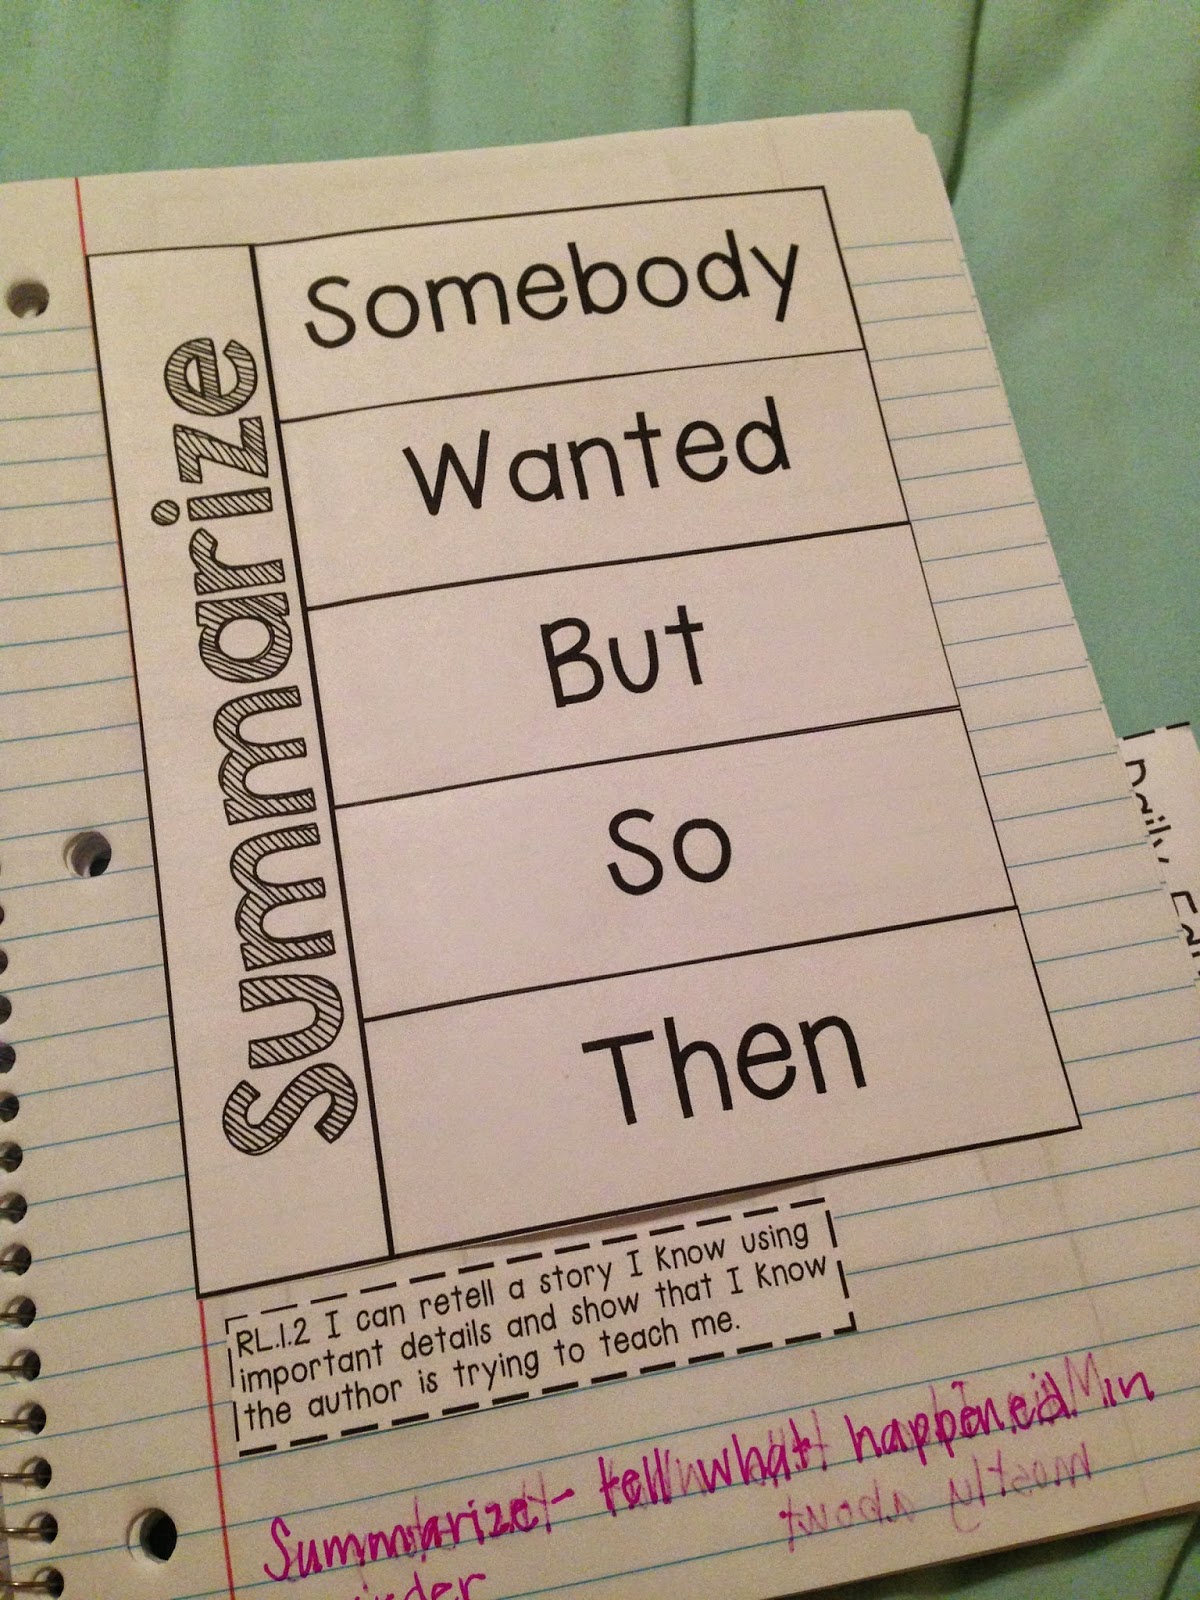 Summarize
Somebody
Wanted
But
So
Then
RL.1.2 I can retell a story I know using
important details and show that I know
the author is trying to teach me.
Summarize - tell what happened in
Daily